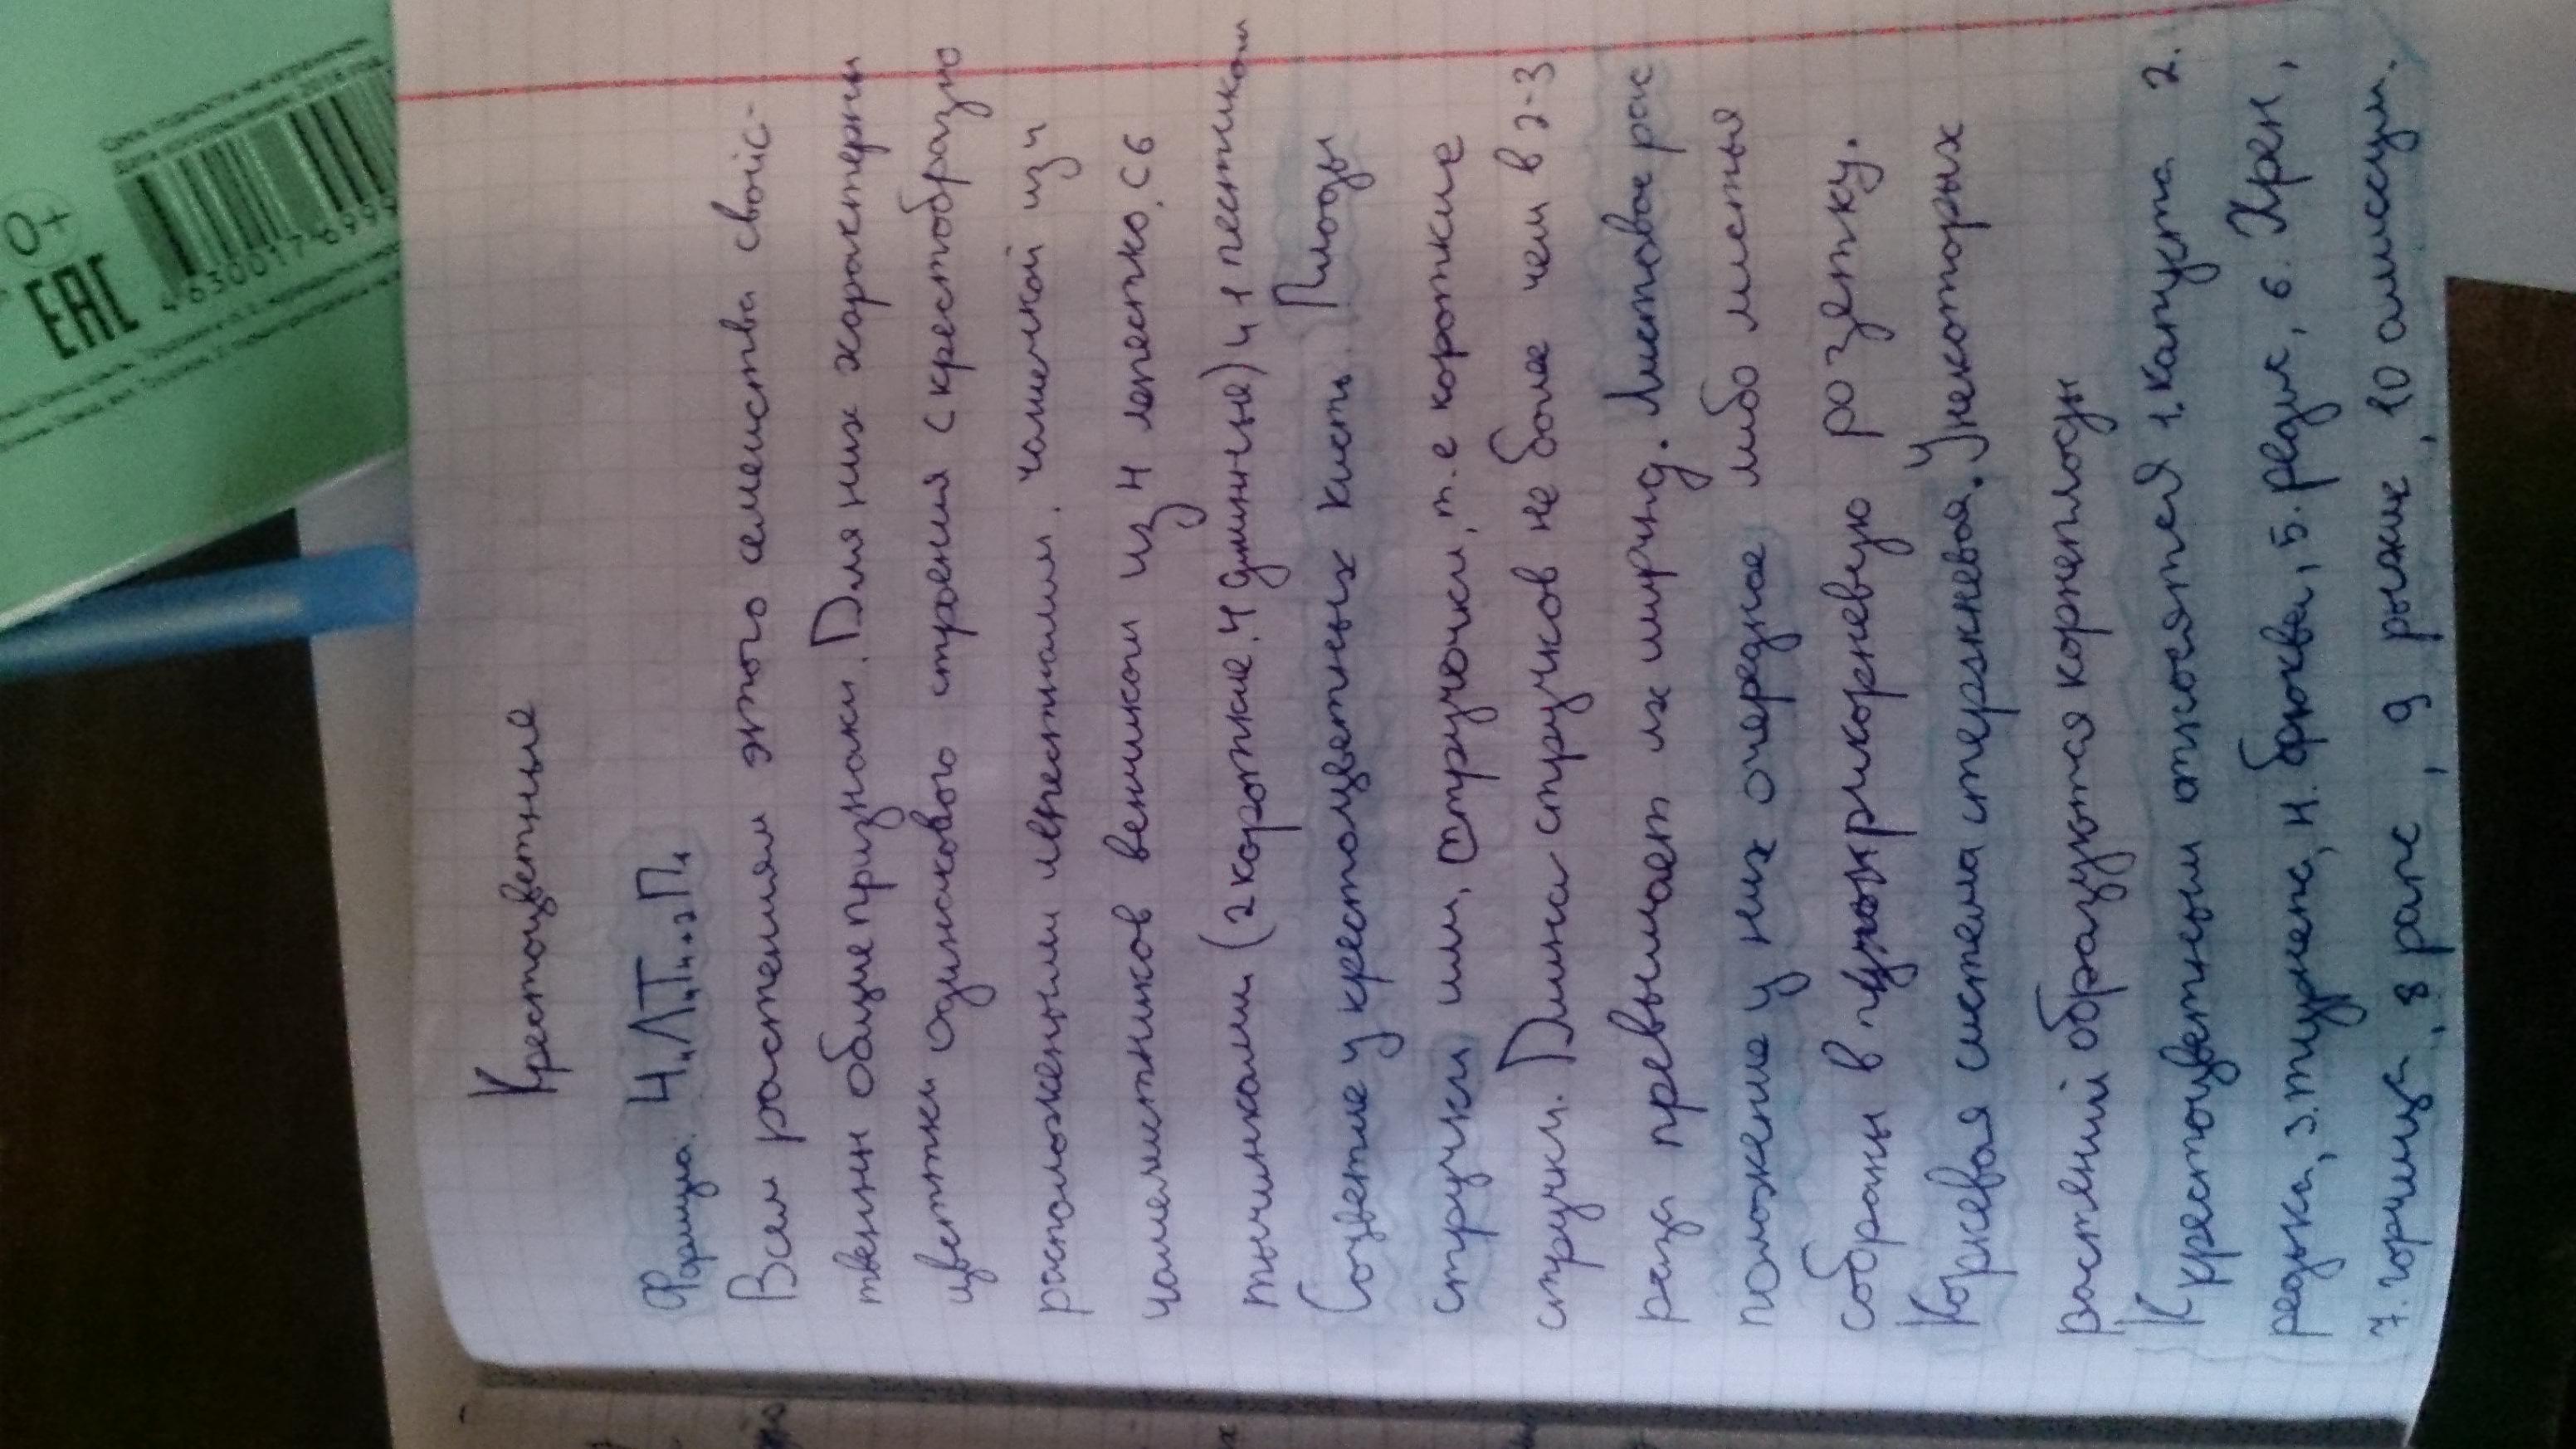 Крестоцветные
Формула. Ч₄Л₄Т₄₊₂П₁
Всем растениям этого семейства свойс-
твенны общие признаки. Для них характерны
цветки одинакового строения с крестобразно
расположеными лепестками. чашечкой из 4
чашелистников венчиком из 4 лепестко. с 6
тычинками (2 короткие. 4 длинные) и 1 пестиком
Соцветие у крестоцветных кисть. Плоды
стручки или, стручочки, т.е короткие
стручки. Длина стручков не более чем в 2-3
раза превышает их ширину. Листовое рас
положение у них очередное либо листья
собраны в прикорневую розетку.
Коржевая система стержневая. У некоторых
растений образуются корнеплоды
К крестоцветным относятся 1. капуста 2.
редька, 3. турнепс, 4. брюква, 5. редис, 6. Хрен,
7. горчица, 8 рапс, 9 рыжик, 10 алиссум.
0+
EAC
4630017 6999